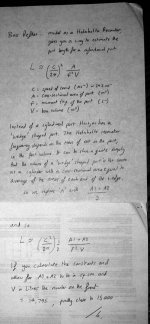 Bass Reflex - model as a Helmholtz Resonator
gives you a way to estimate the
port length for a cylindrical port
L ≈ (c/2π)² A/F²V
c = speed of sound (ms⁻¹)
A = cross-sectional area of port (m²)
F = resonant freq of the port (s⁻¹)
V = box volume (m³)
Instead of a cylindrical port has a
'wedge' shaped port. The Helmholtz resonator
frequency depends on the mass of air in the port,
ie the port volume. It can be shown fairly simply
that the volume of a 'wedge' shaped port is the same
as a cylinder with a cross-sectional area equal to
average of the areas of each end of the wedge.
so we replace 'A' with A1 + A2 / 2
and so
L ≈ (c/2π)² A1 + A2 / F²V
If you calculate the constants and
allow for A1 + A2 to be in sq cm and
V in litres the number on the front
= 14 795, pretty close to 15,000